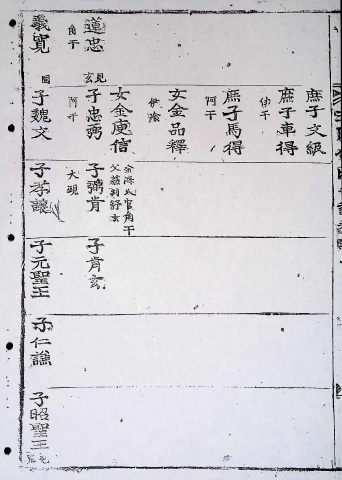 庶子文級
庶子車得
仲干
庶子馬得
阿干
女金品釋
伊飡
女金庾信
金海
官角干
父
舒玄
蓮忠
角干
見
玄
子忠弼
阿干
子弼肯
大
子肯玄
義寬
子魏文
子孝讓
子元聖王
子仁謙
子昭聖王